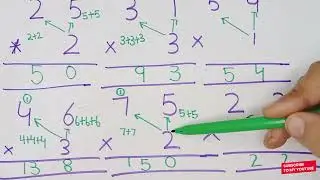 2 5 5+5 3 1 5 9
2+2
* 2 3+3+3 x 3 x 1
5 0 9 3 5 4
① ①
4 6 6+6+6 7 5 5+5 2
4+4+4 7+7
x 3 x 2 x
13 8 15 0 2 2
SUBSCRIBE
TO MY YOUTUBE